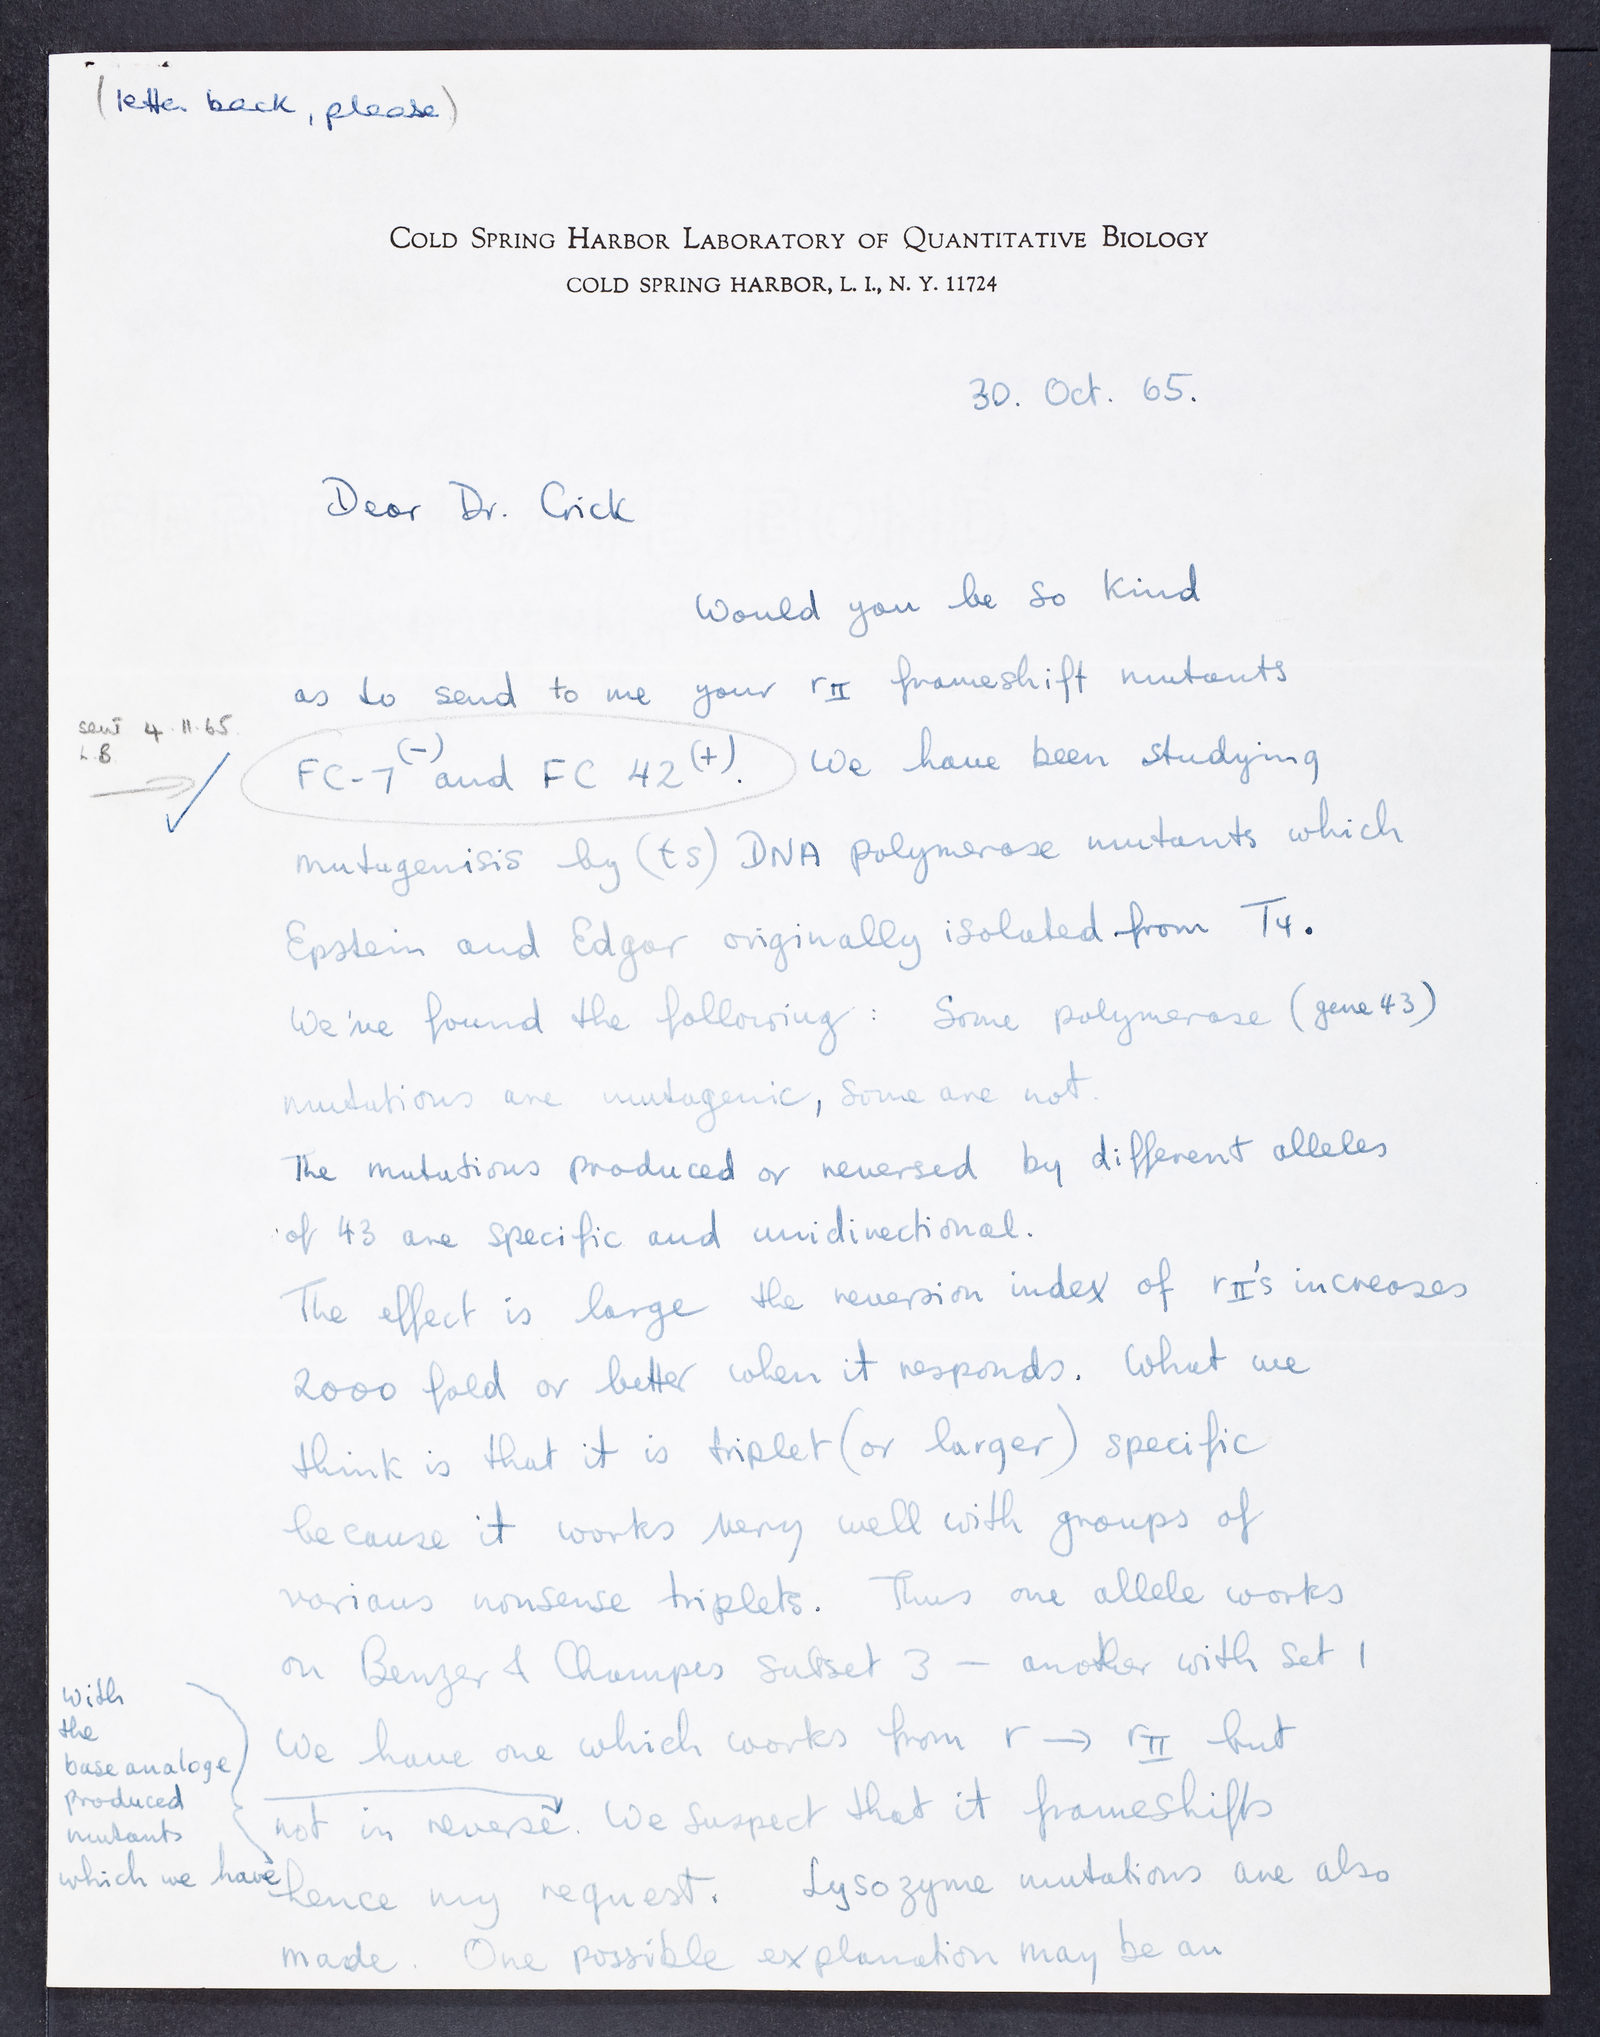 (letter back, please)
COLD SPRING HARBOR LABORATORY OF QUANTITATIVE BIOLOGY
COLD SPRING HARBOR, L. I., N. Y. 11724
30. Oct. 65.
Dear Dr. Crick
Would you be so kind
as to send to me your rII frameshift mutants
sent 4.11.65
L.B
FC-7(-) and FC 42(+). We have been studying
mutagenisis by (ts) DNA polymerase mutants which
Epstein and Edgar originally isolated from T4.
We've found the following: Some polymerase (gene 43)
mutations are mutagenic, some are not.
The mutations produced or reversed by different alleles
of 43 are specific and unidirectional.
The effect is large the reversion index of rII's increases
2000 fold or better when it responds. What we
think is that it is triplet (or larger) specific
because it works very well with groups of
various nonsense triplets. Thus one allele works
on Benzer & Champes subset 3 — another with set 1
We have one which works from r → rII but
not in reverse. We suspect that it frameshifts
hence my request. Lysozyme mutations are also
made. One possible explanation may be an
with
the
base analoge
produced
mutants
which we have